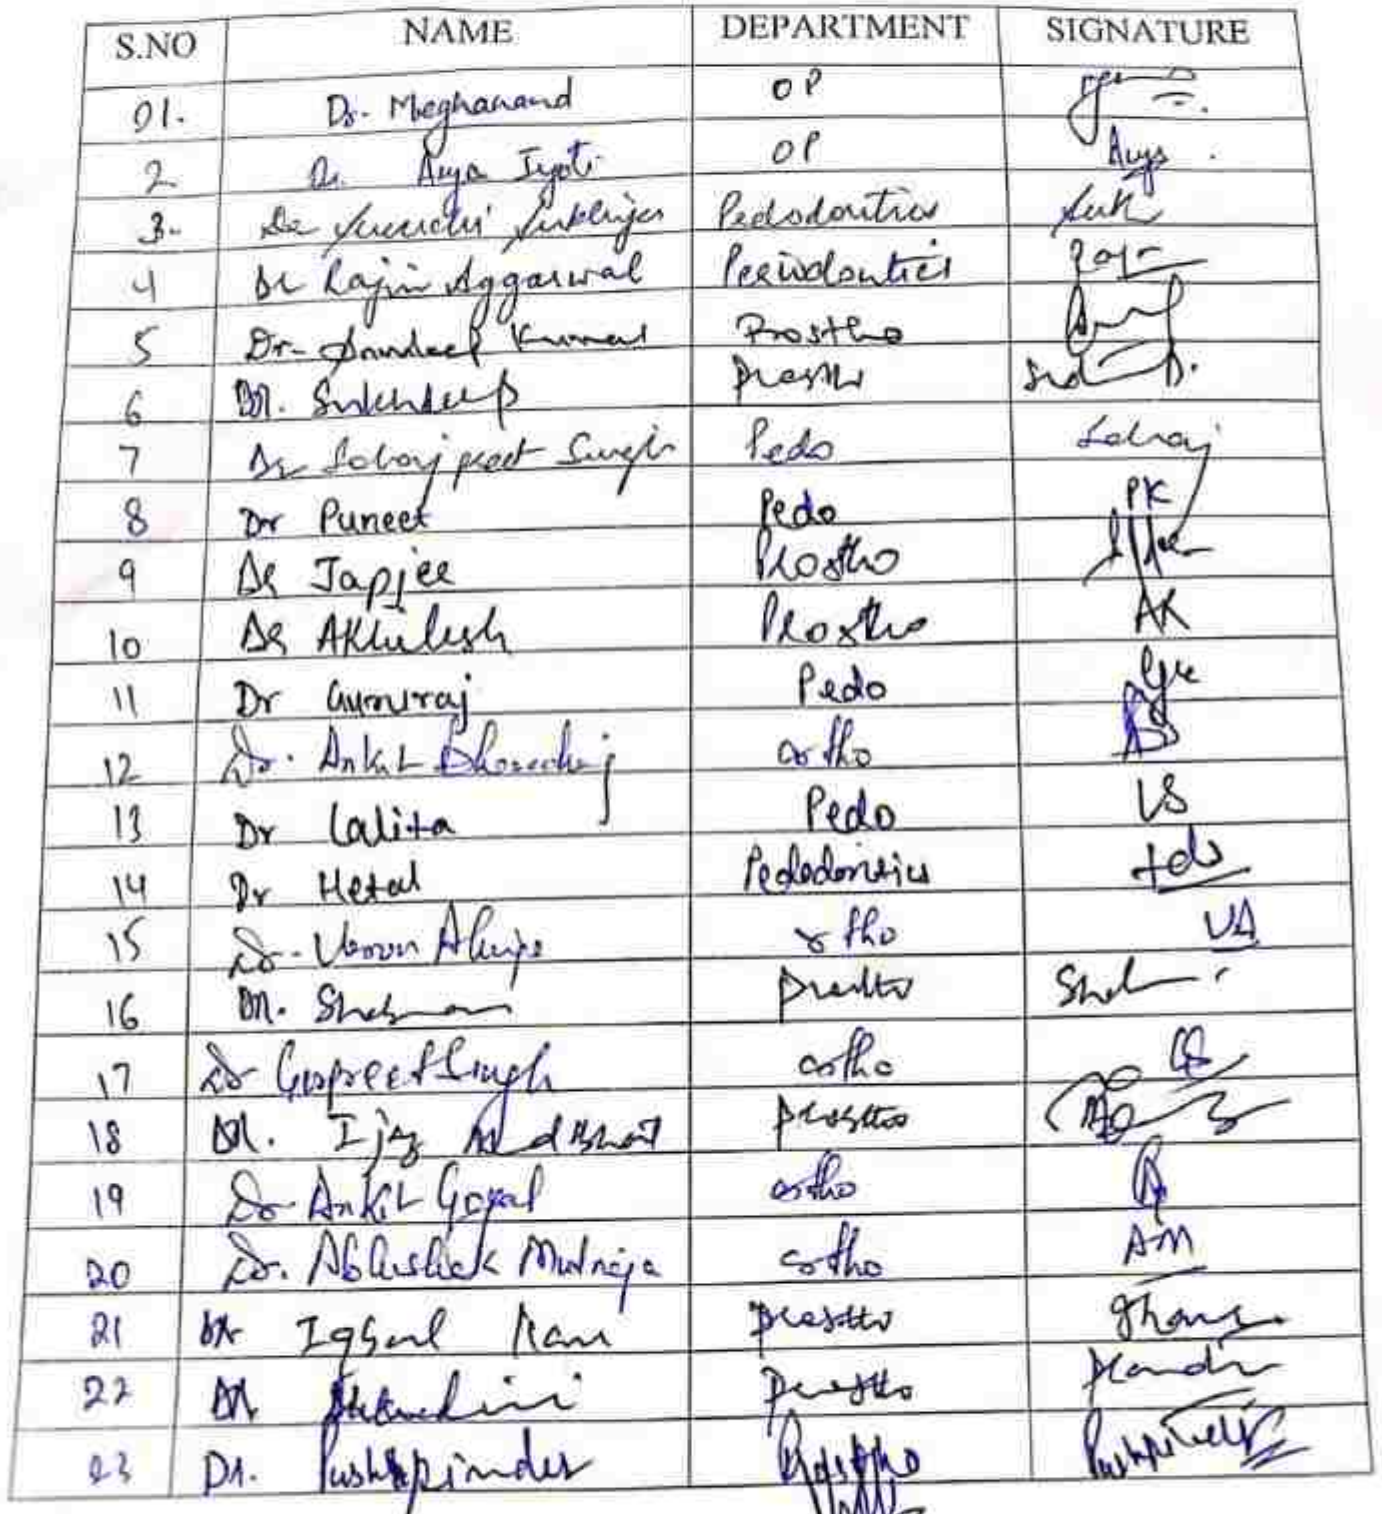 S.NO NAME DEPARTMENT SIGNATURE
01. Dr. Meghanand OP
2 Dr. Arya Jyoti OP Arya
3. Dr Pedodontics
4 Dr Rajiv Aggarwal Periodontics
5 Dr. Sandeep Kumar Prostho
6 DR. Sukhdeep Prostho
7 Dr Sohajpreet Singh Pedo Sohaj
8 Dr Puneet Pedo PK
9 Dr Japjee Prostho
10 Dr Akhilesh Prostho AK
11 Dr Gunraj Pedo
12 Dr. Ankit Bharadwaj ortho
13 Dr Lalita Pedo LS
14 Dr Hetal Pedodontics
15 Dr. Varun Ahuja ortho VA
16 DR. Shabnam Prostho
17 Dr Gurpreet Singh ortho GS
18 DR. Ijaz Ahmad Bhat Prostho
19 Dr Ankit Goyal ortho
20 Dr. Abhishek Mutneja ortho AM
21 Dr Iqbal Prostho
22 DR Prostho
23 Dr. Pushpinder Prostho Pushpinder